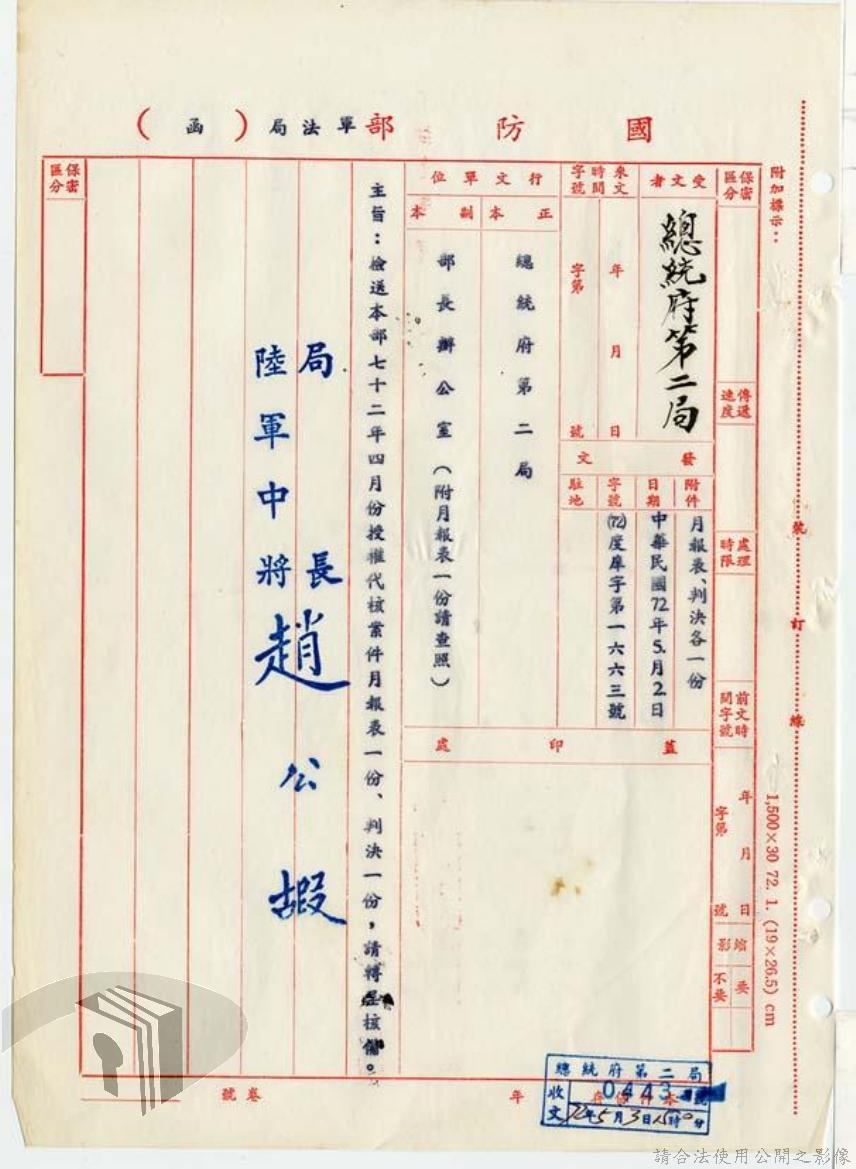 國防部軍法局（函）
附加標示：
裝訂線
1,500×30 72. 1. (19×26.5) cm
保密區分
傳遞速度
處理時限
前文時間字號
年 月 日
字第 號
縮影
要
不要
受文者
總統府第二局
來文時間字號
年 月 日
字第 號
發文
附件
月報表、判決各一份
日期
中華民國72年5月2日
字號
(72)度庠字第一六六三號
駐地
行文單位
正本
總統府第二局
副本
部長辦公室（附月報表一份請查照）
蓋印處
主旨：檢送本部七十二年四月份授權代核案件月報表一份、判決一份，請轉呈核備。
局長
陸軍中將趙公嘏
保密區分
年
卷號
總統府第二局
收文
0443
72年5月3日15時0分
請合法使用公開之影像